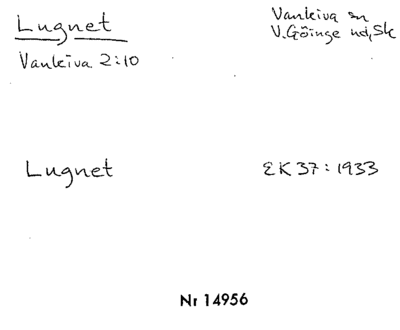 Lugnet
Vankiva sn
Vankiva 2:10
V. Göinge hd, Sk
Lugnet
EK 37:1933
Nr 14956